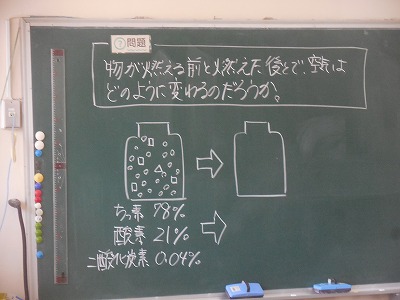 問題
物が燃える前と燃えた後とで、空気は
どのように変わるのだろうか。
ちっ素 78%
酸素 21%
二酸化炭素 0.04%